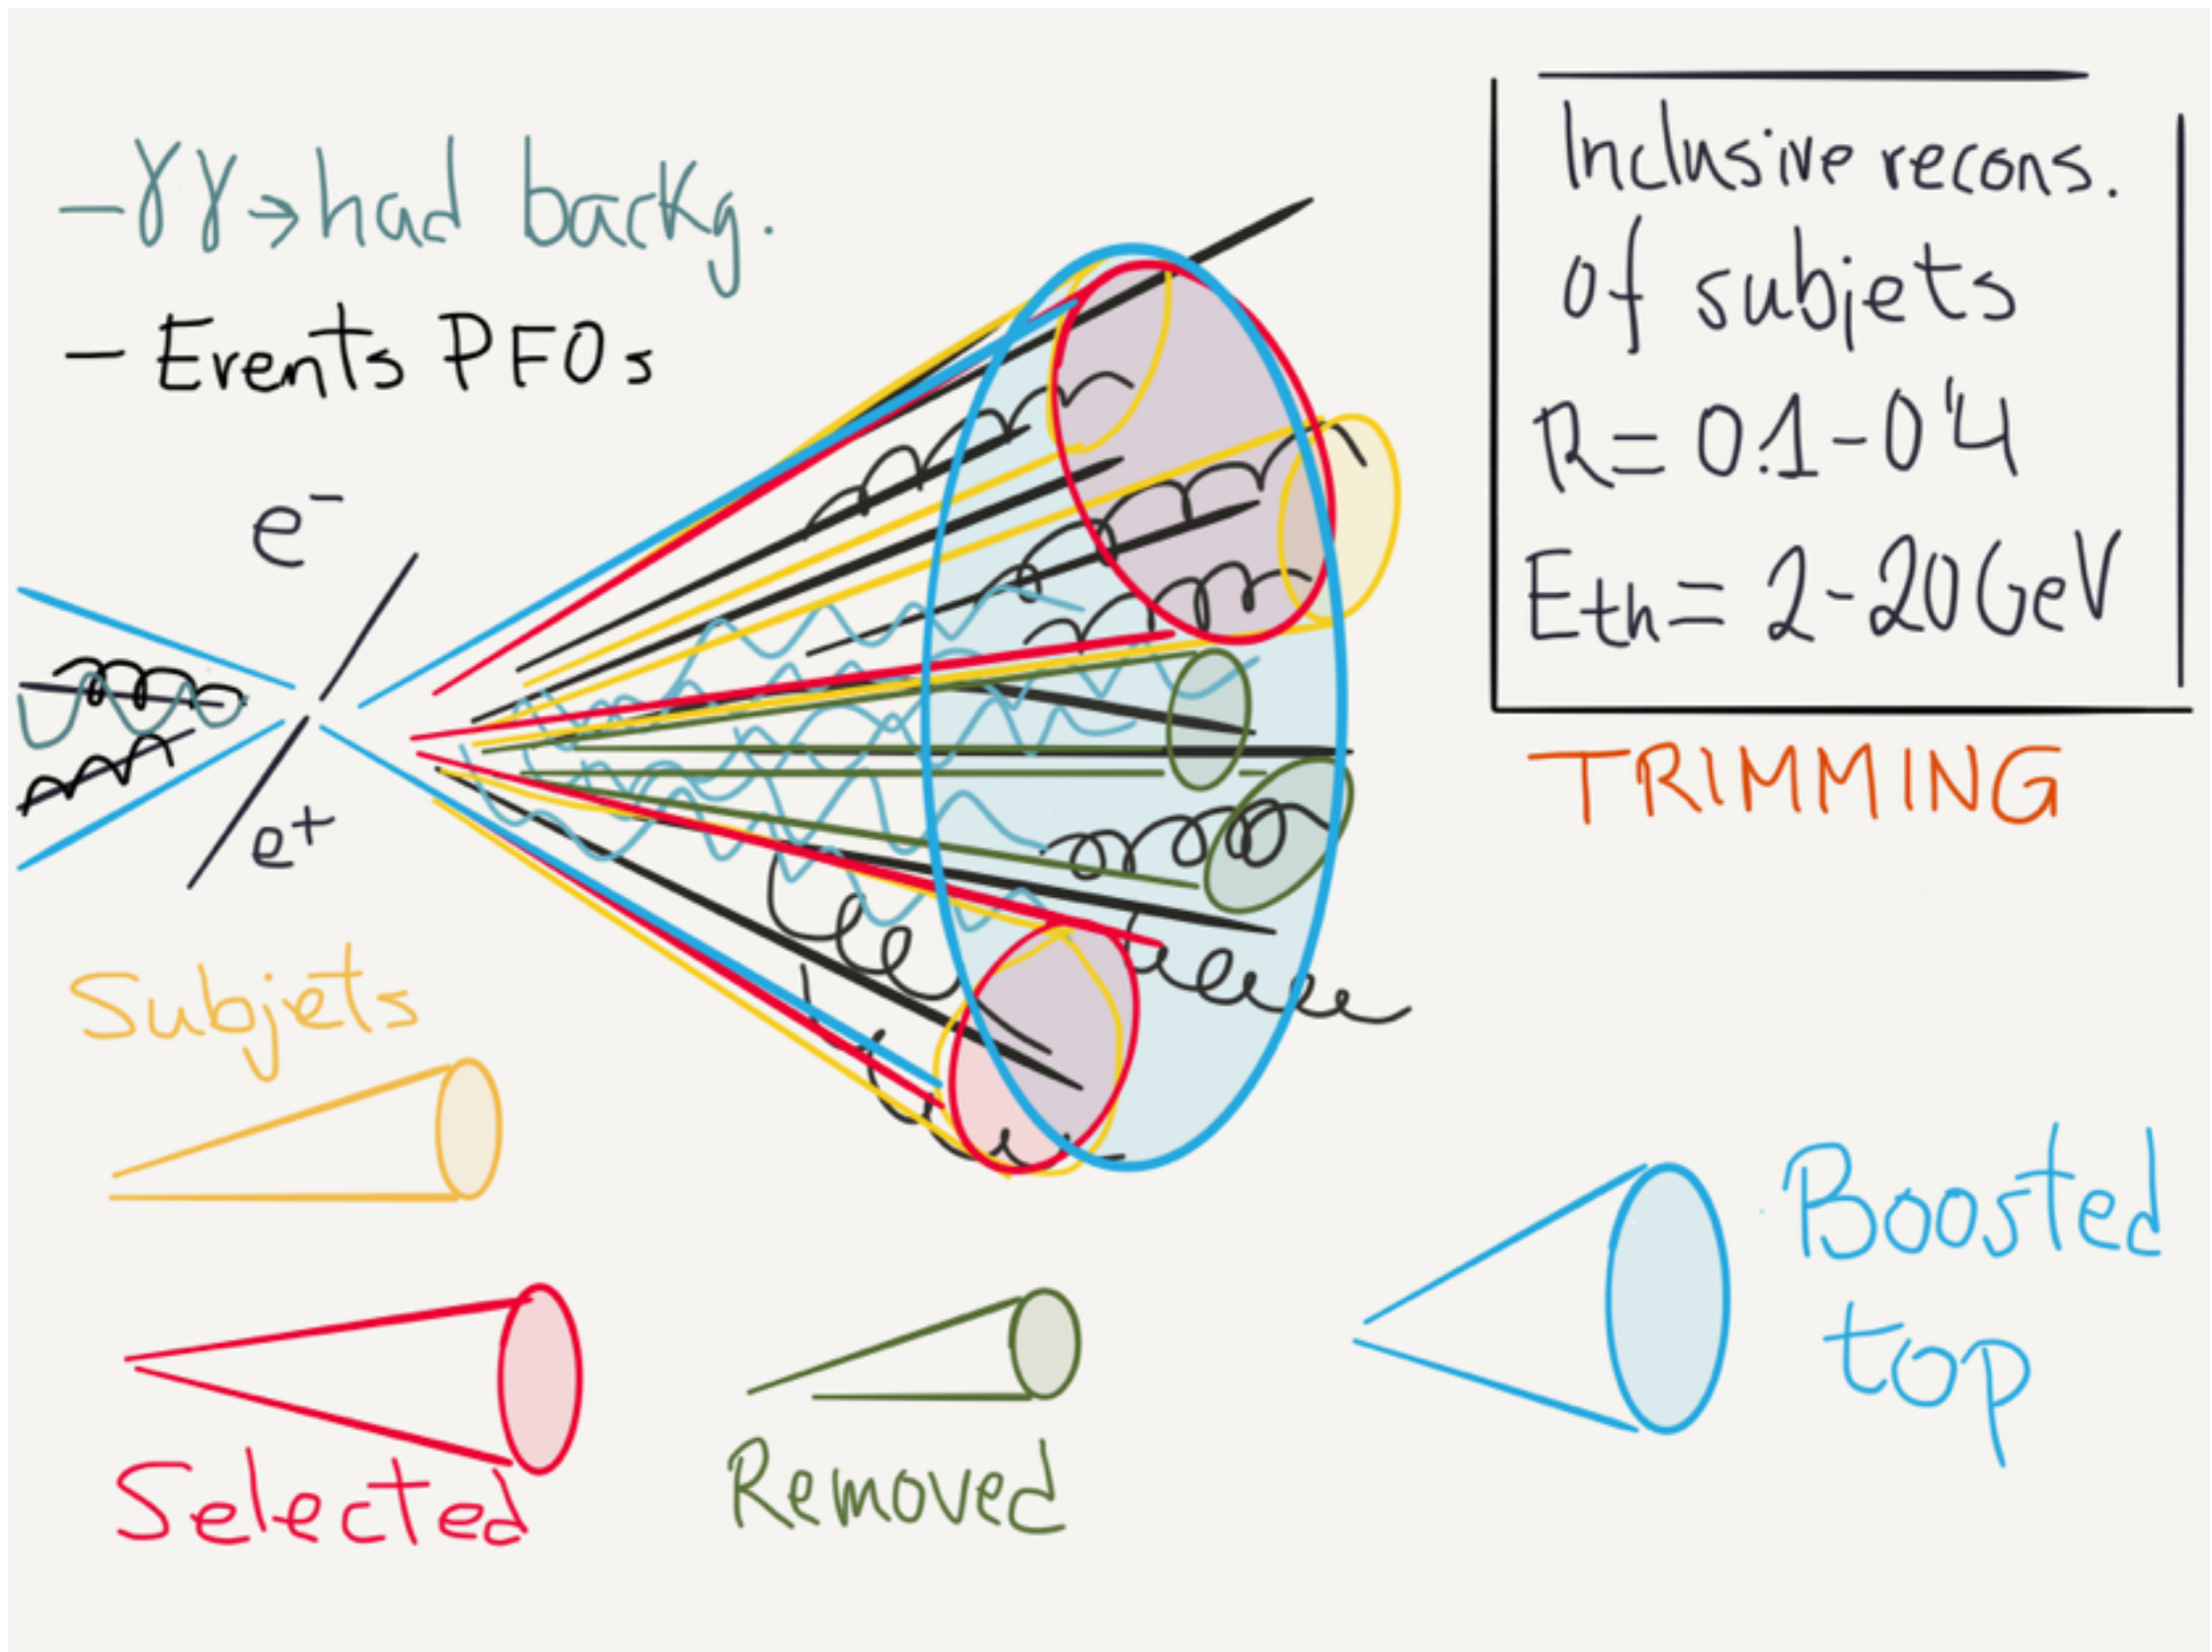 -γγ→had backg.
- Events PFOs
Inclusive recons.
of subjets
R= 0.1-0'4
Eth= 2-20GeV
TRIMMING
e-
e+
Subjets
Selected
Removed
Boosted
top